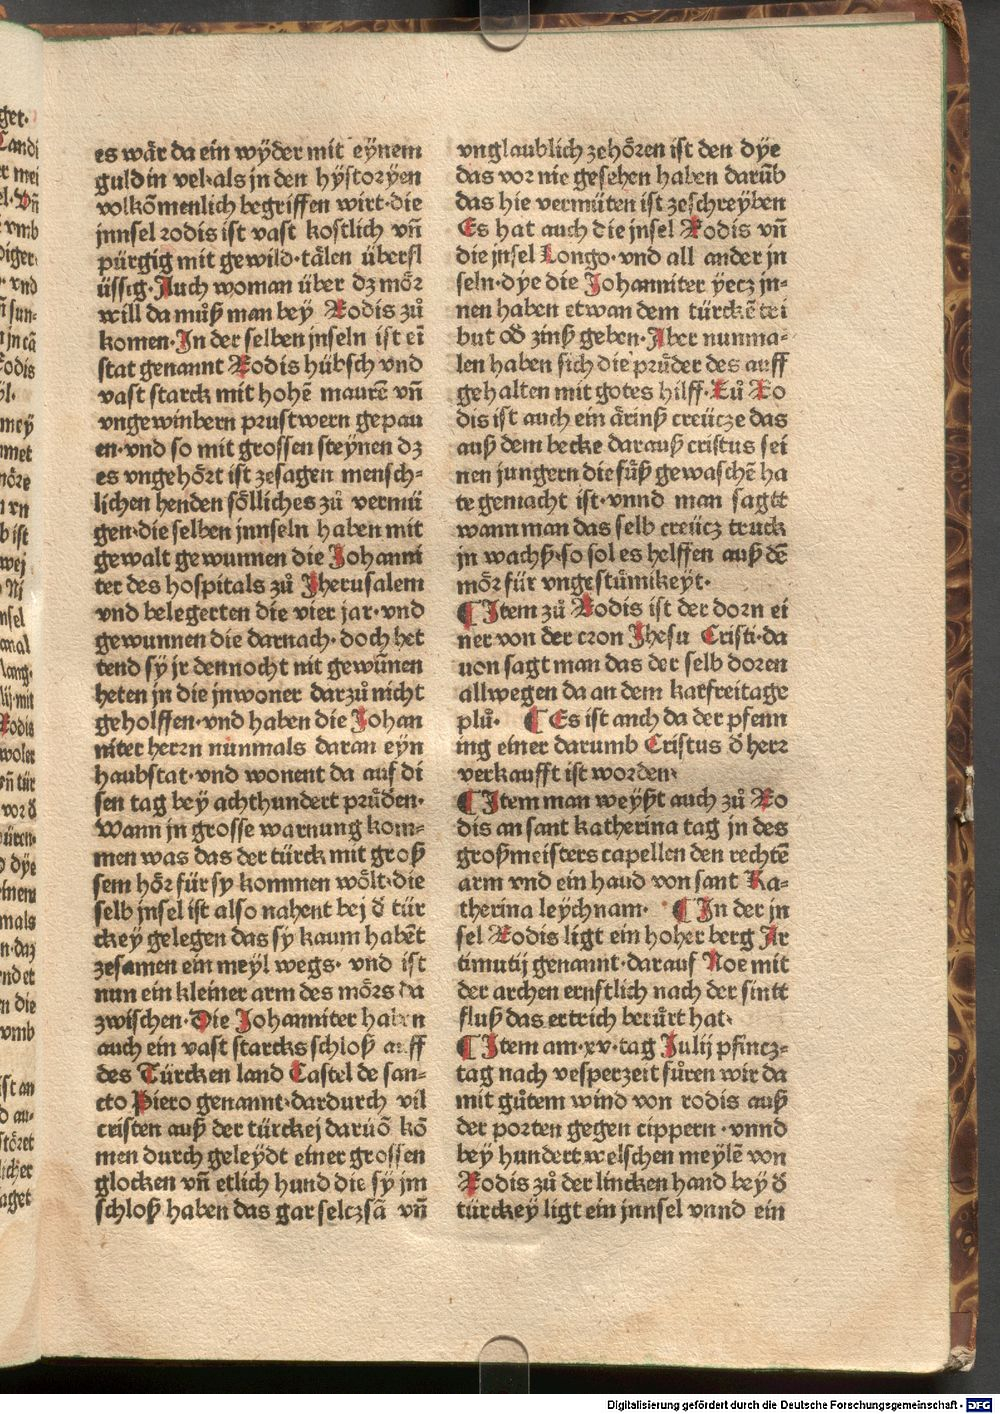 es wär da ein wyder mit eynem
guldin vel·als jn den hystoryen
volkõmenlich begriffen wirt·die
jnnsel rodis ist vast kostlich vñ
pürgig mit gewild·tälen überfl
üssig·Auch woman über dz mör
will da můß man bey Rodis zů
komen·In der selben jnseln ist eĩ
stat genannt Rodis hübsch vnd
vast starck mit hohẽ maurẽ vñ
vngewinbern prustwern gepau
en·vnd so mit grossen steynen dz
es vngehört ist zesagen mensch-
lichen henden sölliches zů vermü
gen·die selben jnnseln haben mit
gewalt gewunnen die Johanni
ter des hospitals zů Jherusalem
vnd belegerten die vier jar·vnd
gewunnen die darnach·doch het
tend sy jr dennocht nit gewũnen
heten jn die jnwoner darzů nicht
geholffen·vnd haben die Johan
niter herrn nunmals daran eyn
haubstat·vnd wonent da auf di
sen tag bey achthundert prüden·
Wann jn grosse warnung kom-
men was das der türck mit groß
sem hör für sy kommen wölt·die
selb jnsel ist also nahent bej d̄ tür
ckey gelegen das sy kaum habẽt
zesamen ein meyl wegs· vnd ist
nun ein kleiner arm des mörs da
zwischen·Die Johanniter haben
auch ein vast starcks schloß auff
des Türcken land Castel de san-
cto Piero genannt·dardurch vil
cristen auß der türckej darũõ kõ
men durch geleydt einer grossen
glocken vñ etlich hund die sy jm
schloß haben das gar selczsã vñ
vnglaublich zehören ist den dye
das vor nie gesehen haben darũb
das hie vermüten ist zeschreyben
Es hat auch die jnsel Rodis vñ
die jnsel Longo·vnd all ander jn
seln·dye die Johanniter yecz jn-
nen haben etwan dem türckẽ tri
but od̄ zinß geben·Aber nunma-
len haben sich die prüder des auff
gehalten mit gotes hilff·Zů Ro
dis ist auch ein ärinß creücze das
auß dem becke darauß cristus sei
nen jungern die füß gewaschẽ ha
te gemacht ist·vnnd man sagtt
wann man das selb creücz truck
jn wachß·so sol es helffen auß dẽ
mör für vngestümikeyt·
¶ Item zů Rodis ist der dorn ei
ner von der cron Jhesu Cristi·da
uon sagt man das der selb doren
allwegen da an dem karfreitage
plů· ¶ Es ist auch da der pfenn
ing einer darumb Cristus d̄ herr
verkaufft ist worden·
¶ Item man weyßt auch zů Ro
dis an sant katherina tag jn des
großmeisters capellen den rechtẽ
arm vnd ein hand von sant Ka-
therina leychnam· ¶ In der jn
sel Rodis ligt ein hoher berg Ar
timutij genannt·darauf Noe mit
der archen ernstlich nach der sintt
fluß das ertrich berürt hat·
¶ Item am·xv·tag Julij pfincz-
tag nach vesperzeit füren wir da
mit gütem wind von rodis auß
der porten gegen cippern·vnnd
bey hundert welschen meylẽ von
Rodis zů der lincken hand bey d̄
türckey ligt ein jnnsel vnnd ein
Digitalisierung gefördert durch die Deutsche Forschungsgemeinschaft - DFG